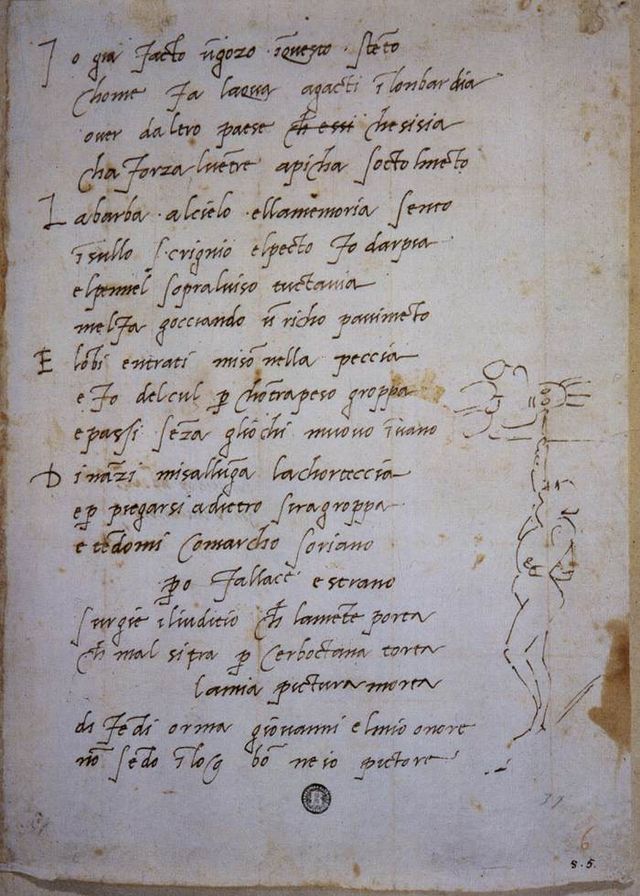 I o gia facto ūgozo īquesto stēto
chome fa laqua agacti ī lombardia
over daltro paese ch̄ essi chesisia
cha forza lvētre apicha socto lmēto
L abarba alcielo ellamemoria sento
īsullo scrignio elpecto fo darpia
elpennel sopraluiso tuctavia
melfa gocciando ū richo pavimēto
E lōbi entrati misō nella peccia
e fo delcul p̄ chōtrapeso groppa
e passi sēza gliochi muovo īvano
D inā̄zi misallūga lachorteccia
e p̄ piegarsi adietro siragroppa
e tēdomi Comarcho soriano
p̄o fallace e strano
surgie iliudicio ch̄ lamēte porta
ch̄ mal sitra p̄ cerboctana torta
lamia pictura morta
di fēdi orma giovanni elmio onore
nō sēdo ī loco bō ne io pictore
6
8.5.